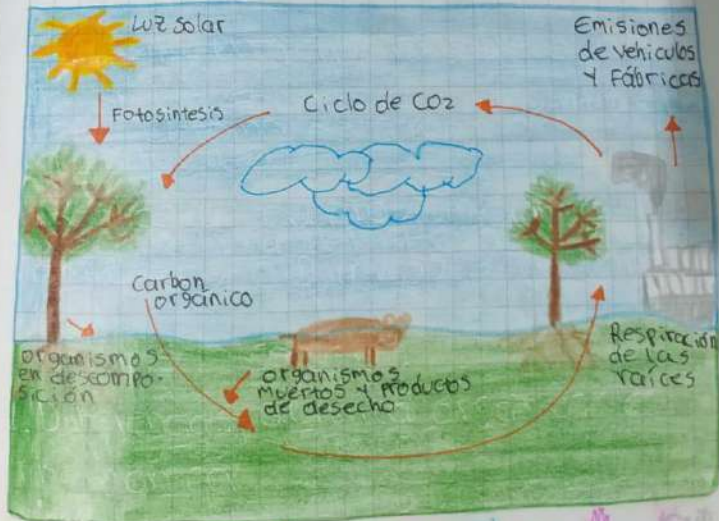 Luz solar
Emisiones
de vehiculos
y Fábricas
Fotosintesis
Ciclo de CO2
Carbon
organico
organismos
en descompo-
sición
organismos
muertos y productos
de desecho
Respiración
de las
raíces